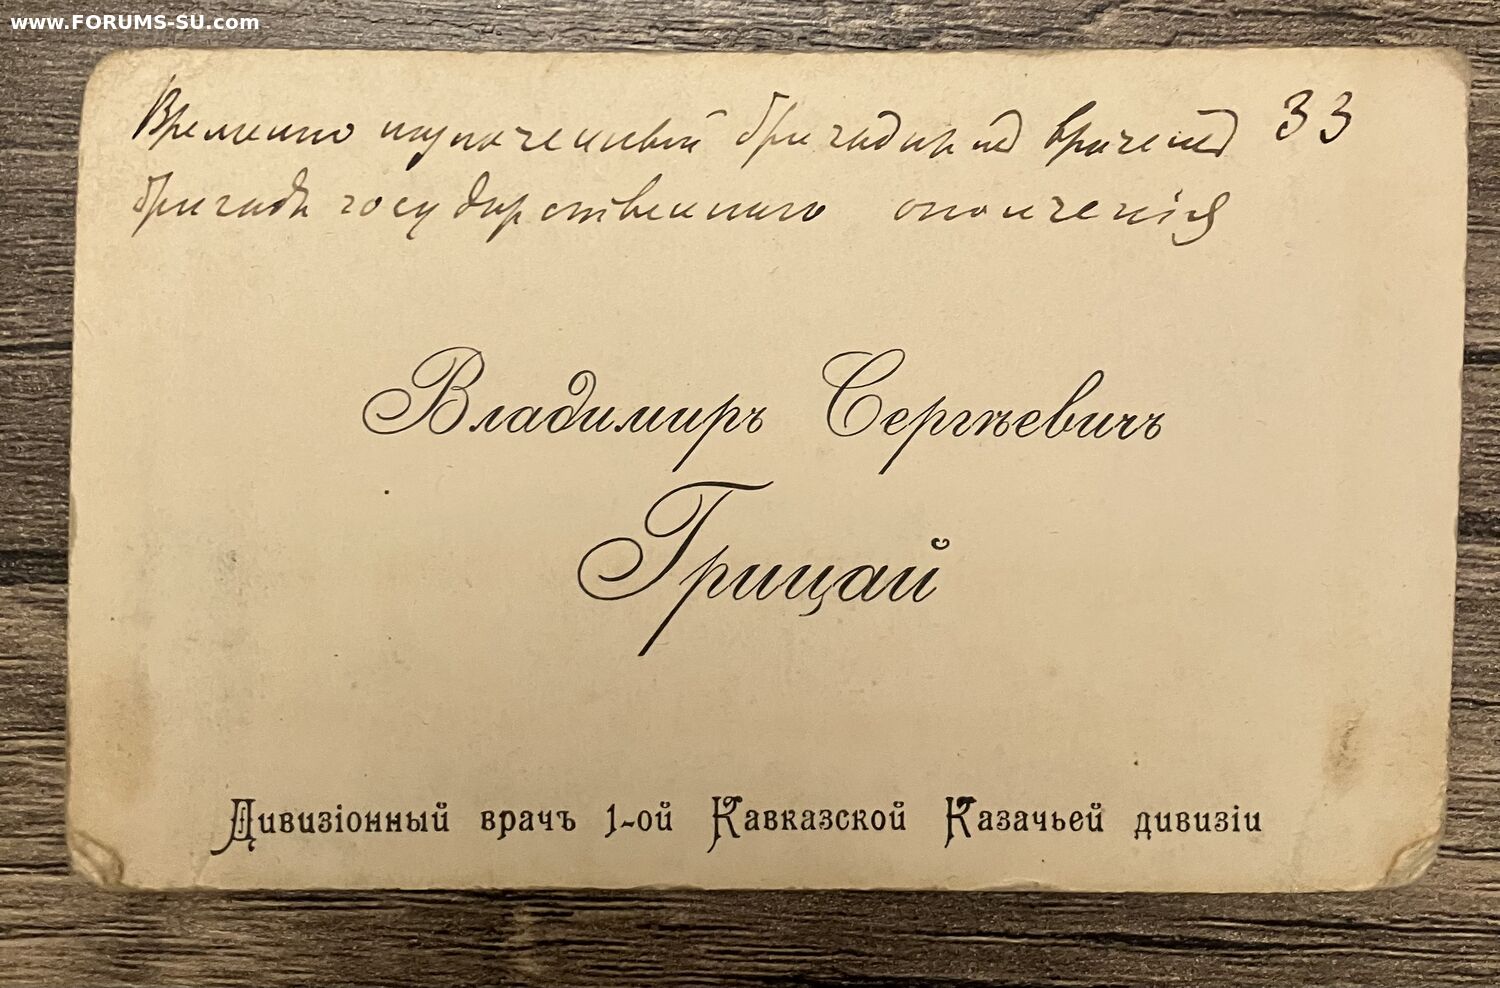 www.FORUMS-SU.com
Временно назначенный бригаднымъ врачемъ 33
бригады государственнаго ополченія
Владимиръ Сергѣевичъ
Грицай
Дивизіонный врачъ 1-ой Кавказской Казачьей дивизіи